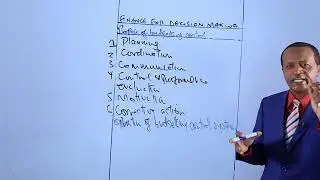 FINANCE FOR DECISION MAKING
Purpose of budgetary control
1. Planning
2 Cordination
3 Communication
4 Control & Performance
evaluation
5 Motivation
6 Corrective action
of budgetary control system